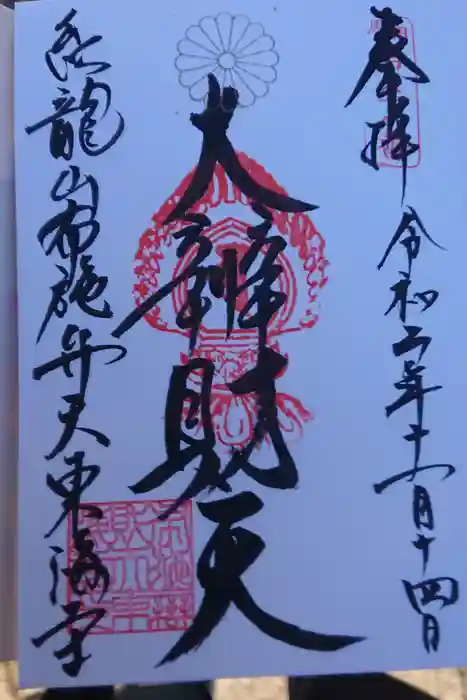 奉拝
令和二年十一月十四日
大辨財天
飛龍山布施弁天東海寺